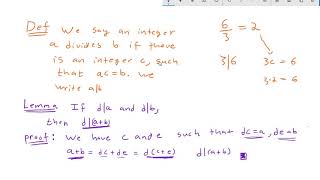 Def We say an integer
a divides b if there
is an integer c, such
that ac=b. We
write a|b
6/3 = 2
3|6
3c = 6
3·2 = 6
Lemma If d|a and d|b,
then d|(a+b)
proof: We have c and e such that dc=a, de=b
a+b = dc+de = d(c+e) d|(a+b)